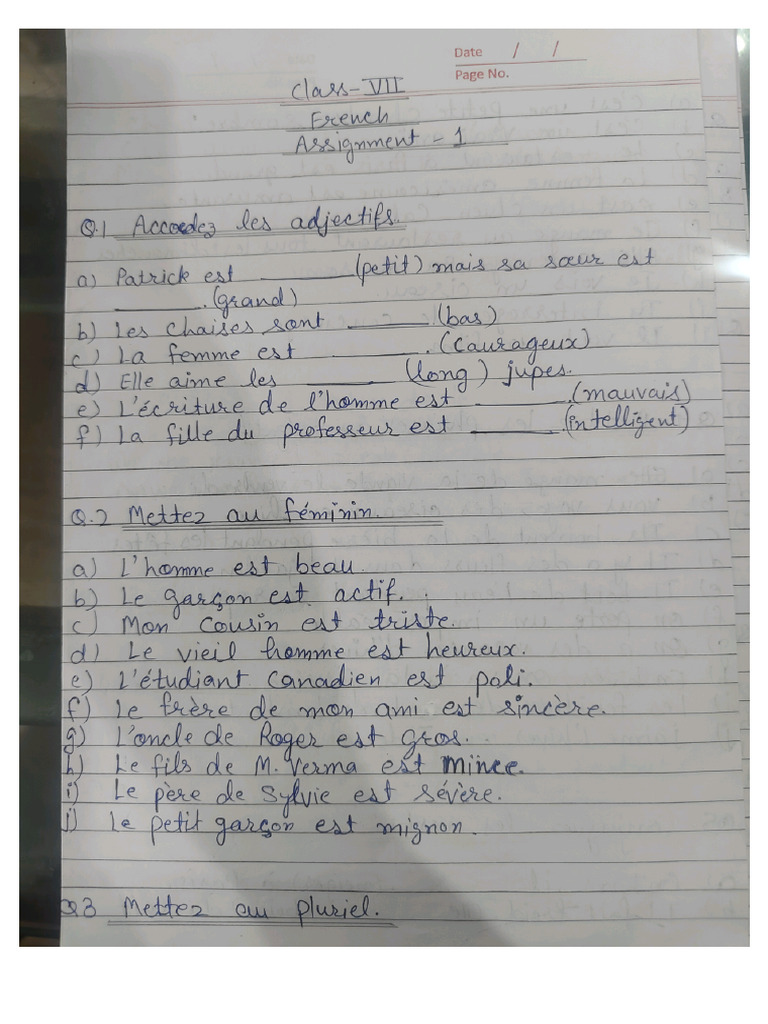 Date / /
Page No.
Class-VII
French
Assignment - 1
Q.1 Accordez les adjectifs.
a) Patrick est ________ (petit) mais sa sœur est
________. (grand)
b) Les chaises sont ________ (bas)
c) La femme est ________. (Caurageux)
d) Elle aime les ________ (long) jupes.
e) L'écriture de l'homme est ________. (mauvais)
f) La fille du professeur est ________. (intelligent)
Q.2 Mettez au féminin.
a) L'homme est beau.
b) Le garçon est actif.
c) Mon cousin est triste.
d) Le vieil homme est heureux.
e) L'étudiant Canadien est poli.
f) Le frère de mon ami est sincère.
g) L'oncle de Roger est gros.
h) Le fils de M. Verma est mince.
i) Le père de Sylvie est sévère.
j) Le petit garçon est mignon.
Q3 Mettez au pluriel.